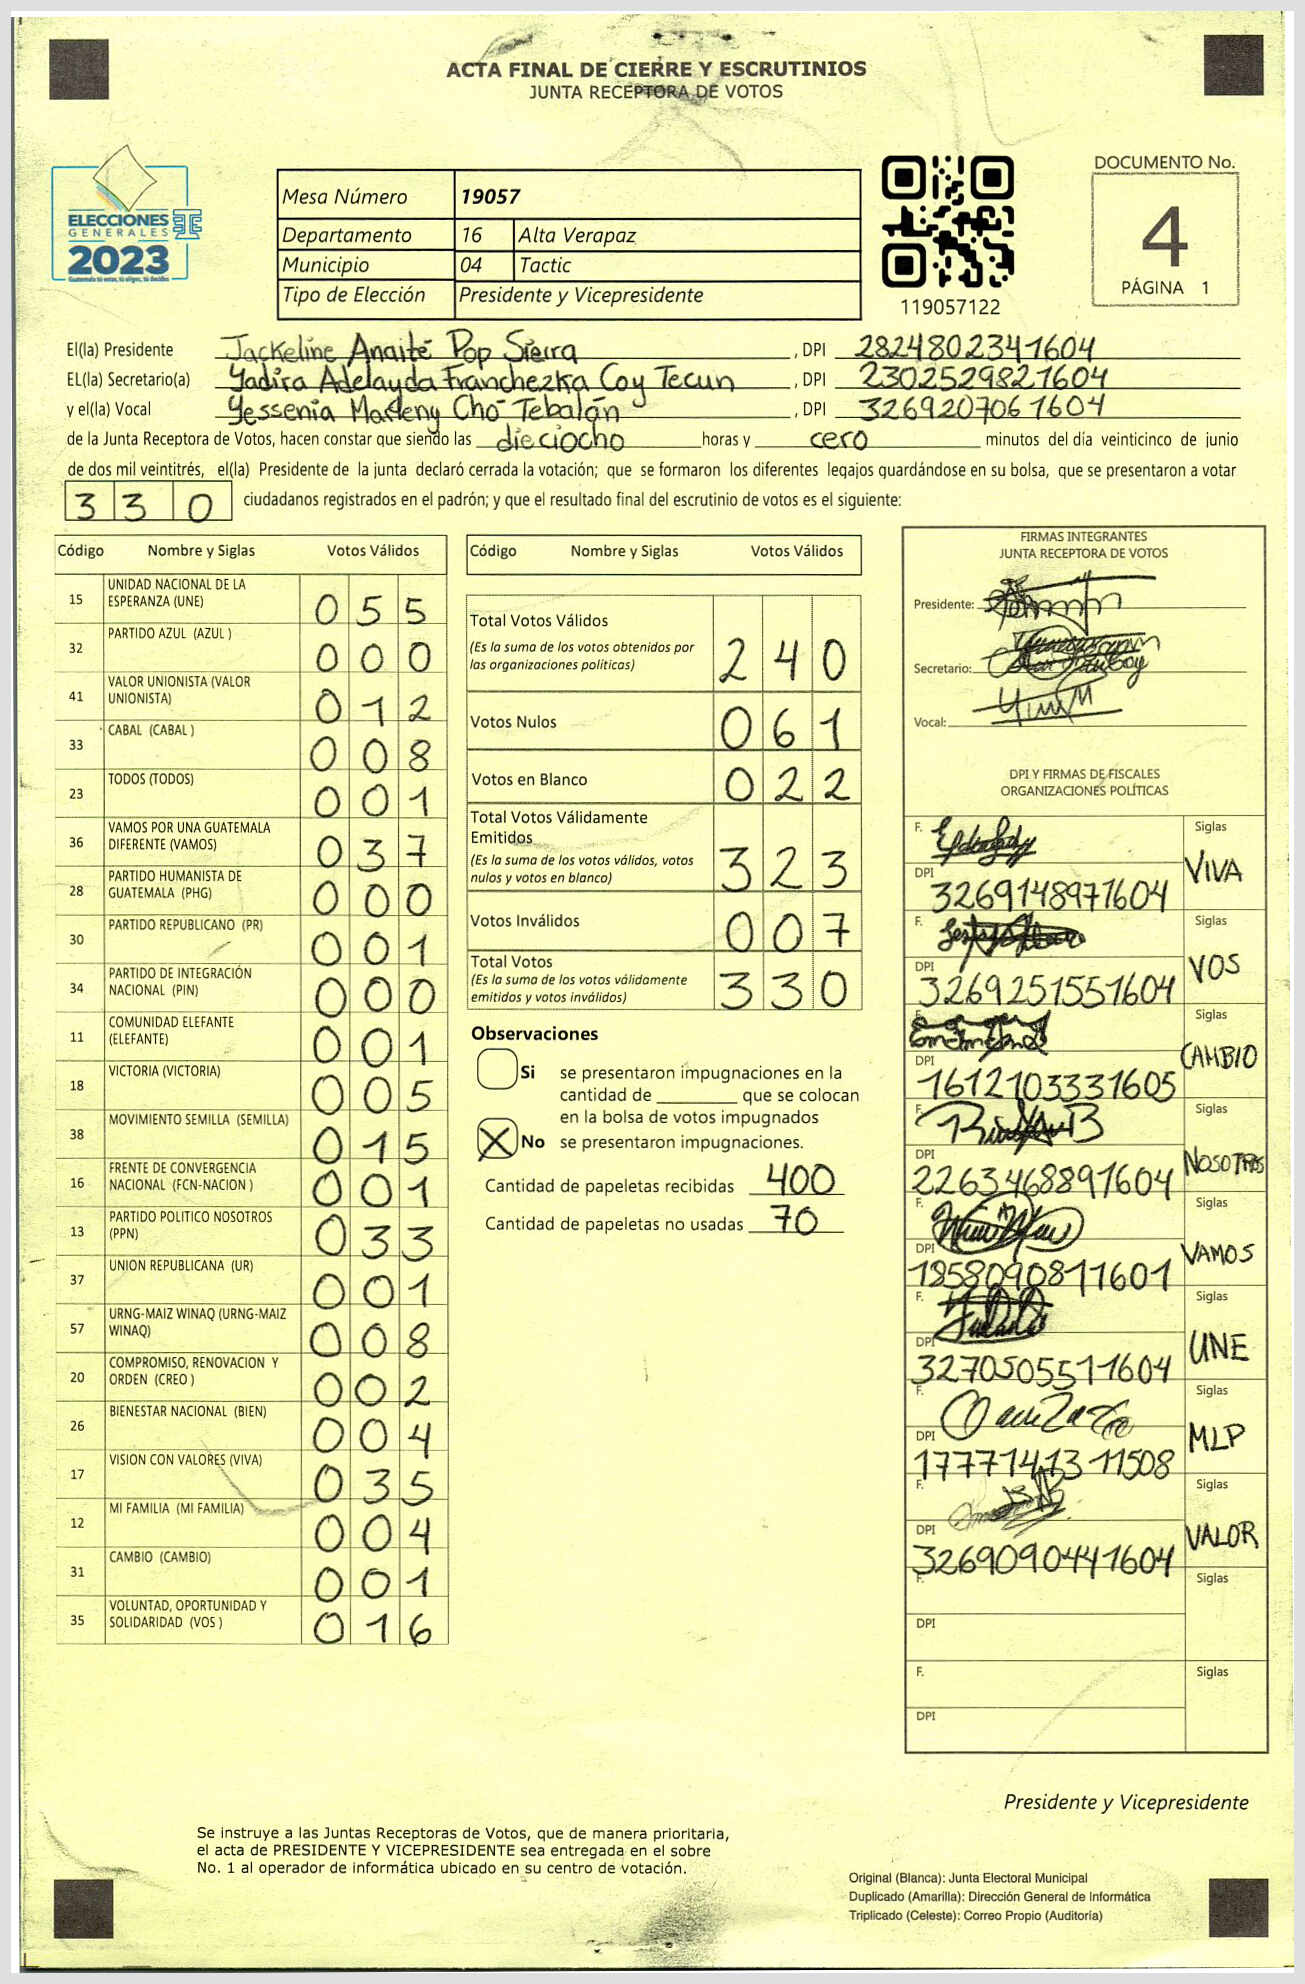 ACTA FINAL DE CIERRE Y ESCRUTINIOS
JUNTA RECEPTORA DE VOTOS
ELECCIONES
GENERALES
2023
Mesa Número 19057
Departamento 16 Alta Verapaz
Municipio 04 Tactic
Tipo de Elección Presidente y Vicepresidente
119057122
DOCUMENTO No.
4
PÁGINA 1
El(la) Presidente Jackeline Anaité Pop Sierra , DPI 2824802341604
EL(la) Secretario(a) Yadira Adelayda Franchezka Coy Tecun , DPI 2302529821604
y el(la) Vocal Yessenia Marleny Cho Tebalán , DPI 3269207061604
de la Junta Receptora de Votos, hacen constar que siendo las dieciocho horas y cero minutos del día veinticinco de junio
de dos mil veintitrés, el(la) Presidente de la junta declaró cerrada la votación; que se formaron los diferentes legajos guardándose en su bolsa, que se presentaron a votar
330 ciudadanos registrados en el padrón; y que el resultado final del escrutinio de votos es el siguiente:
Código Nombre y Siglas Votos Válidos
15 UNIDAD NACIONAL DE LA ESPERANZA (UNE) 055
32 PARTIDO AZUL (AZUL ) 000
41 VALOR UNIONISTA (VALOR UNIONISTA) 012
33 CABAL (CABAL ) 008
23 TODOS (TODOS) 001
36 VAMOS POR UNA GUATEMALA DIFERENTE (VAMOS) 037
28 PARTIDO HUMANISTA DE GUATEMALA (PHG) 000
30 PARTIDO REPUBLICANO (PR) 001
34 PARTIDO DE INTEGRACIÓN NACIONAL (PIN) 000
11 COMUNIDAD ELEFANTE (ELEFANTE) 001
18 VICTORIA (VICTORIA) 005
38 MOVIMIENTO SEMILLA (SEMILLA) 015
16 FRENTE DE CONVERGENCIA NACIONAL (FCN-NACION ) 001
13 PARTIDO POLITICO NOSOTROS (PPN) 033
37 UNION REPUBLICANA (UR) 001
57 URNG-MAIZ WINAQ (URNG-MAIZ WINAQ) 008
20 COMPROMISO, RENOVACION Y ORDEN (CREO ) 002
26 BIENESTAR NACIONAL (BIEN) 004
17 VISION CON VALORES (VIVA) 035
12 MI FAMILIA (MI FAMILIA) 004
31 CAMBIO (CAMBIO) 001
35 VOLUNTAD, OPORTUNIDAD Y SOLIDARIDAD (VOS ) 016
Código Nombre y Siglas Votos Válidos
Total Votos Válidos 240
(Es la suma de los votos obtenidos por
las organizaciones políticas)
Votos Nulos 061
Votos en Blanco 022
Total Votos Válidamente
Emitidos
(Es la suma de los votos válidos, votos
nulos y votos en blanco) 323
Votos Inválidos 007
Total Votos
(Es la suma de los votos válidamente
emitidos y votos inválidos) 330
Observaciones
Si se presentaron impugnaciones en la
cantidad de ________ que se colocan
en la bolsa de votos impugnados
X No se presentaron impugnaciones.
Cantidad de papeletas recibidas 400
Cantidad de papeletas no usadas 70
FIRMAS INTEGRANTES
JUNTA RECEPTORA DE VOTOS
Presidente:
Secretario:
Vocal:
DPI Y FIRMAS DE FISCALES
ORGANIZACIONES POLÍTICAS
F. Siglas
DPI 3269148971604 VIVA
F. Siglas
DPI 3269251551604 VOS
F. Siglas
DPI 1612103331605 CAMBIO
F. Siglas
DPI 2263468891604 NOSOTROS
F. Siglas
DPI 1858090811601 VAMOS
F. Siglas
DPI 3270505511604 UNE
F. Siglas
DPI 1777141311508 MLP
F. Siglas
DPI 3269090441604 VALOR
F. Siglas
DPI
F. Siglas
DPI
Presidente y Vicepresidente
Se instruye a las Juntas Receptoras de Votos, que de manera prioritaria,
el acta de PRESIDENTE Y VICEPRESIDENTE sea entregada en el sobre
No. 1 al operador de informática ubicado en su centro de votación.
Original (Blanca): Junta Electoral Municipal
Duplicado (Amarilla): Dirección General de Informática
Triplicado (Celeste): Correo Propio (Auditoría)